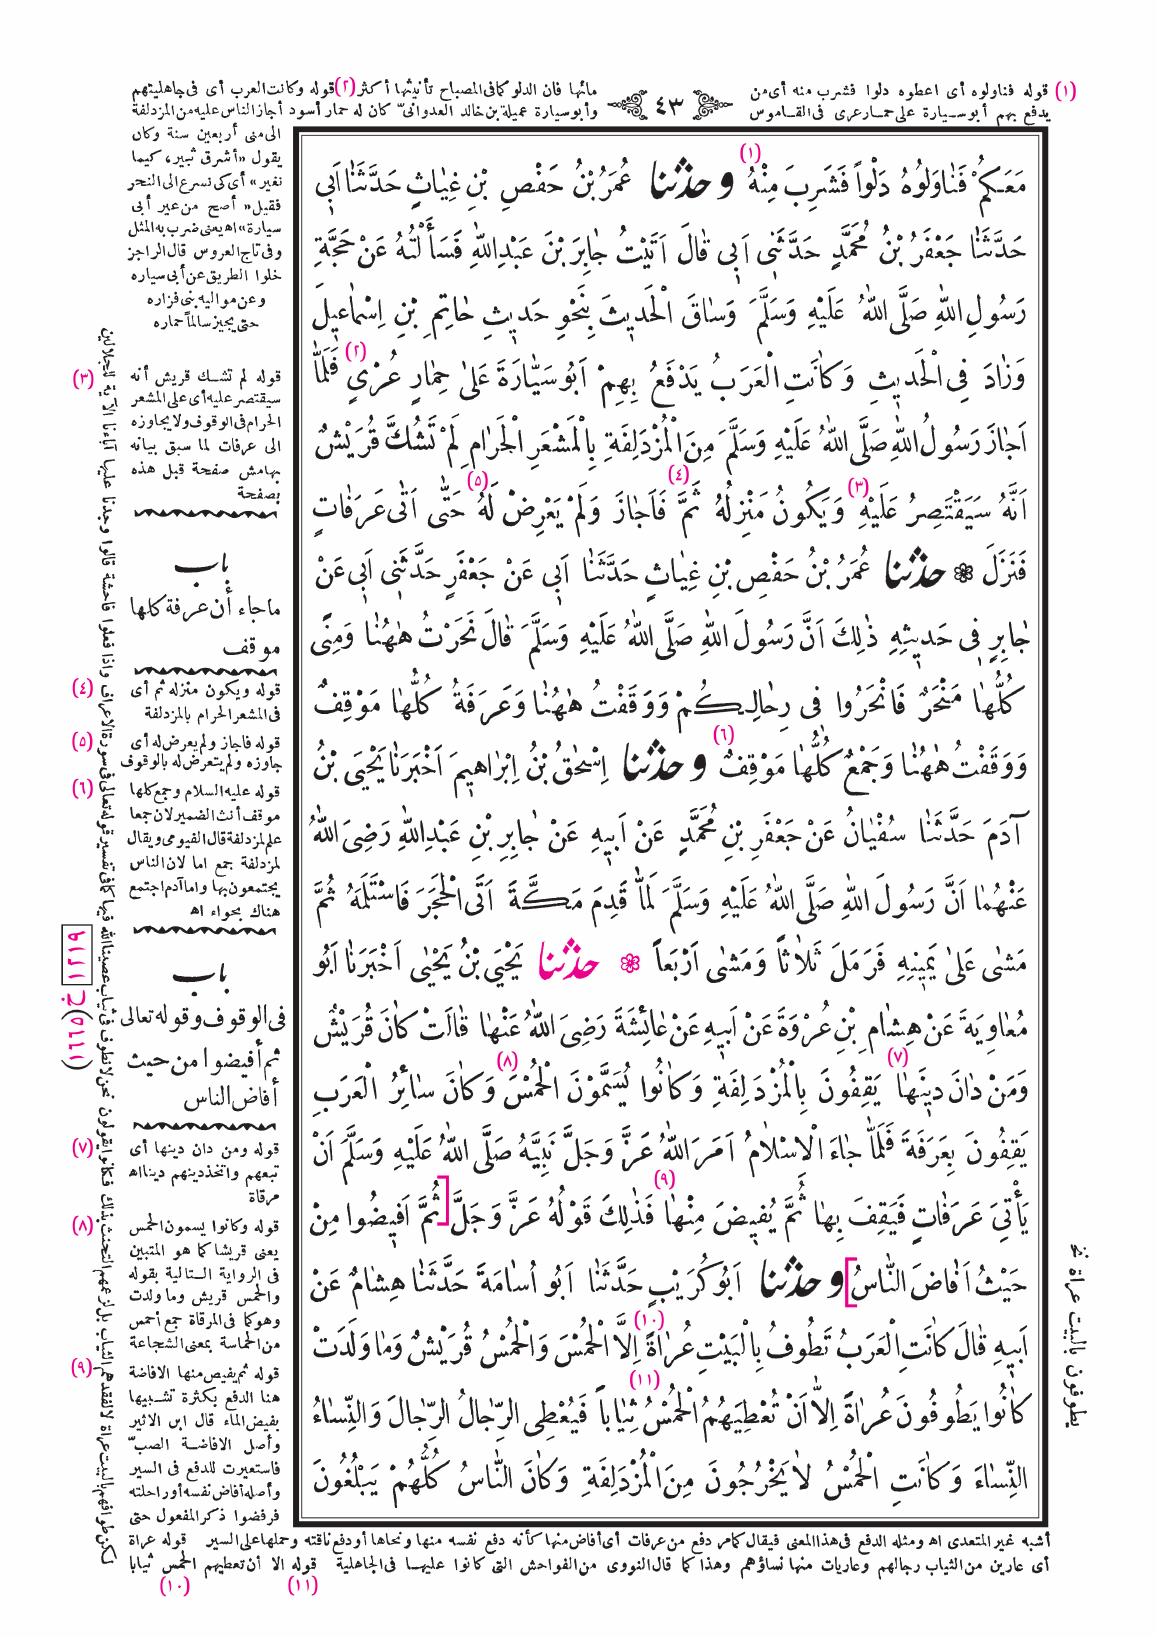 (١) قوله فناولوه أى اعطوه دلوا فشرب منه أى من
يدفع بهم أبوسيارة على حمار عرى فى القاموس
٤٣
مائها فان الدلو كما فى المصباح تأنيثها أكثر (٢) قوله وكانت العرب أى فى جاهليتهم
وأبوسيارة عميلة بن خالد العدوانىّ كان له حمار أسود أجاز الناس عليه من المزدلفة
الى منى أربعين سنة وكان
يقول «أشرق ثبير، كيما
نغير» أى كى نسرع الى النحر
فقيل «أصح من عير أبى
سيارة» اه يعنى ضرب به المثل
وفى تاج العروس قال الراجز
خلوا الطريق عن أبى سياره
وعن مواليه بنى فزاره
حتى يجيز سالماً حماره
مَعَكُمْ فَنَاوَلُوهُ دَلْواً فَشَرِبَ مِنْهُ (١) وحدثنا عُمَرُ بْنُ حَفْصِ بْنِ غِيَاثٍ حَدَّثَنَا اَبِى
حَدَّثَنَا جَعْفَرُ بْنُ مُحَمَّدٍ حَدَّثَنِى اَبِى قَالَ اَتَيْتُ جَابِرَ بْنَ عَبْدِاللّٰهِ فَسَأَلْتُهُ عَنْ حَجَّةِ
رَسُولِ اللّٰهِ صَلَّى اللّٰهُ عَلَيْهِ وَسَلَّمَ وَسَاقَ الْحَدِيثَ بِنَحْوِ حَدِيثِ حَاتِمِ بْنِ اِسْمَاعِيلَ
وَزَادَ فِى الْحَدِيثِ وَكَانَتِ الْعَرَبُ يَدْفَعُ بِهِمْ اَبُو سَيَّارَةَ عَلَى حِمَارٍ عُرْىٍ (٢) فَلَمَّا
اَجَازَ رَسُولُ اللّٰهِ صَلَّى اللّٰهُ عَلَيْهِ وَسَلَّمَ مِنَ الْمُزْدَلِفَةِ بِالْمَشْعَرِ الْحَرَامِ لَمْ تَشُكَّ قُرَيْشٌ
اَنَّهُ سَيَقْتَصِرُ عَلَيْهِ (٣) وَيَكُونُ مَنْزِلُهُ ثَمَّ (٤) فَاَجَازَ وَلَمْ يَعْرِضْ لَهُ (٥) حَتَّى اَتَى عَرَفَاتٍ
فَنَزَلَ ❁ حدثنا عُمَرُ بْنُ حَفْصِ بْنِ غِيَاثٍ حَدَّثَنَا اَبِى عَنْ جَعْفَرٍ حَدَّثَنِى اَبِى عَنْ
جَابِرٍ فِى حَدِيثِهِ ذٰلِكَ اَنَّ رَسُولَ اللّٰهِ صَلَّى اللّٰهُ عَلَيْهِ وَسَلَّمَ قَالَ نَحَرْتُ هٰهُنَا وَمِنًى
كُلُّهَا مَنْحَرٌ فَانْحَرُوا فِى رِحَالِكُمْ وَوَقَفْتُ هٰهُنَا وَعَرَفَةُ كُلُّهَا مَوْقِفٌ
وَوَقَفْتُ هٰهُنَا وَجَمْعٌ كُلُّهَا مَوْقِفٌ (٦) وحدثنا اِسْحٰقُ بْنُ اِبْرَاهِيمَ اَخْبَرَنَا يَحْيَى بْنُ
آدَمَ حَدَّثَنَا سُفْيَانُ عَنْ جَعْفَرِ بْنِ مُحَمَّدٍ عَنْ اَبِيهِ عَنْ جَابِرِ بْنِ عَبْدِاللّٰهِ رَضِىَ اللّٰهُ
عَنْهُمَا اَنَّ رَسُولَ اللّٰهِ صَلَّى اللّٰهُ عَلَيْهِ وَسَلَّمَ لَمَّا قَدِمَ مَكَّةَ اَتَى الْحَجَرَ فَاسْتَلَمَهُ ثُمَّ
مَشَى عَلَى يَمِينِهِ فَرَمَلَ ثَلَاثاً وَمَشَى اَرْبَعاً ❁ حدثنا يَحْيَى بْنُ يَحْيٰى اَخْبَرَنَا اَبُو
مُعَاوِيَةَ عَنْ هِشَامِ بْنِ عُرْوَةَ عَنْ اَبِيهِ عَنْ عَائِشَةَ رَضِىَ اللّٰهُ عَنْهَا قَالَتْ كَانَ قُرَيْشٌ
وَمَنْ دَانَ دِينَهَا (٧) يَقِفُونَ بِالْمُزْدَلِفَةِ وَكَانُوا يُسَمَّوْنَ الْحُمْسَ (٨) وَكَانَ سَائِرُ الْعَرَبِ
يَقِفُونَ بِعَرَفَةَ فَلَمَّا جَاءَ الْاِسْلَامُ اَمَرَ اللّٰهُ عَزَّ وَجَلَّ نَبِيَّهُ صَلَّى اللّٰهُ عَلَيْهِ وَسَلَّمَ اَنْ
يَأْتِىَ عَرَفَاتٍ فَيَقِفَ بِهَا ثُمَّ يُفِيضَ مِنْهَا (٩) فَذٰلِكَ قَوْلُهُ عَزَّ وَجَلَّ [ثُمَّ اَفِيضُوا مِنْ
حَيْثُ اَفَاضَ النَّاسُ] وحدثنا اَبُو كُرَيْبٍ حَدَّثَنَا اَبُو اُسَامَةَ حَدَّثَنَا هِشَامٌ عَنْ
اَبِيهِ قَالَ كَانَتِ الْعَرَبُ تَطُوفُ بِالْبَيْتِ عُرَاةً (١٠) اِلَّا الْحُمْسَ وَالْحُمْسُ قُرَيْشٌ وَمَا وَلَدَتْ
كَانُوا يَطُوفُونَ عُرَاةً اِلَّا اَنْ تُعْطِيَهُمُ الْحُمْسُ ثِيَاباً (١١) فَيُعْطِى الرِّجَالُ الرِّجَالَ وَالنِّسَاءُ
النِّسَاءَ وَكَانَتِ الْحُمْسُ لَا يَخْرُجُونَ مِنَ الْمُزْدَلِفَةِ وَكَانَ النَّاسُ كُلُّهُمْ يَبْلُغُونَ
(٣) قوله لم تشك قريش أنه
سيقتصر عليه أى على المشعر
الحرام فى الوقوف ولا يجاوزه
الى عرفات لما سبق بيانه
بهامش صفحة قبل هذه
بصفحة
باب
ماجاء أن عرفة كلها
موقف
(٤) قوله ويكون منزله ثم أى
فى المشعر الحرام بالمزدلفة
(٥) قوله فاجاز ولم يعرض له أى
جاوزه ولم يتعرض له بالوقوف
(٦) قوله عليه السلام وجمع كلها
موقف أنث الضمير لان جمعا
علم لمزدلفة قال الفيومى ويقال
لمزدلفة جمع اما لان الناس
يجتمعون بها واما آدم اجتمع
هناك بحواء اه
باب
فى الوقوف وقوله تعالى
ثم أفيضوا من حيث
أفاض الناس
(٧) قوله ومن دان دينها أى
تبعهم واتخذ دينهم دينا اه
مرقاة
(٨) قوله وكانوا يسمون الحمس
يعنى قريشا كما هو المتبين
فى الرواية الـتالية بقوله
والحمس قريش وما ولدت
وهو كما فى المرقاة جمع أحمس
من الحماسة بمعنى الشجاعة
(٩) قوله ثم يفيض منها الافاضة
هنا الدفع بكثرة تشبيها
بفيض الماء قال ابن الاثير
وأصل الافاضة الصبّ
فاستعيرت للدفع فى السير
وأصله أفاض نفسه أو راحلته
فرفضوا ذكر المفعول حتى
أشبه غير المتعدى اه ومثله الدفع فى هذا المعنى فيقال كما مر دفع من عرفات أى أفاض منها كأنه دفع نفسه منها ونحاها أو دفع ناقته وحملها على السير قوله عراة
أى عارين من الثياب رجالهم وعاريات منها نساؤهم وهذا كما قال النووى من الفواحش التى كانوا عليهـا فى الجاهلية قوله الا أن تعطيهم الحمس ثيابا
(١١) (١٠)
لكن طوافهم بالبيت عراة لا لفقدهم الثياب بل لزعمهم التحنث بذلك فكانوا يقولون نحن لا نطوف فى ثياب عصينا الله فيها كما فى تفسير قوله تعالى فى سورة الاعراف واذا فعلوا فاحشة قالوا وجدنا عليها آباءنا الآية للجلالين
يطوفون بالبيت عراة نخ